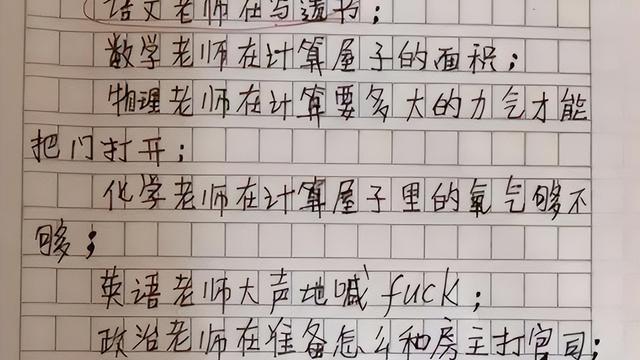 语文老师在写遗书；
数学老师在计算屋子的面积；
物理老师在计算要多大的力气才能
把门打开；
化学老师在计算屋子里的氧气够不
够；
英语老师大声地喊fuck；
政治老师在准备怎么和房主打官司；